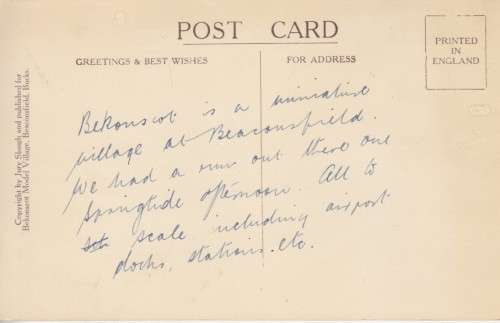 POST CARD
GREETINGS & BEST WISHES
FOR ADDRESS
PRINTED
IN
ENGLAND
Copyright by Jury Slough and published for
Bekonscot Model Village, Beaconsfield, Bucks.
Bekonscot is a miniature
village at Beaconsfield.
We had a run out there one
Springtide afternoon. All to
scale including airport
docks, stations. etc.